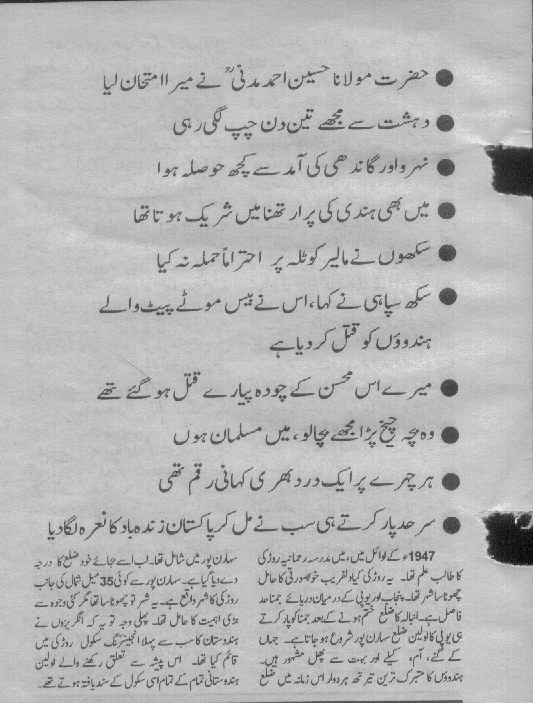 حضرت مولانا حسین احمد مدنیؒ نے میرا امتحان لیا
دہشت سے مجھے تین دن چپ لگی رہی
نہرو اور گاندھی کی آمد سے کچھ حوصلہ ہوا
میں بھی ہندی کی پرارتھنا میں شریک ہوتا تھا
سکھوں نے مالیر کوٹلہ پر احتراماً حملہ نہ کیا
سکھ سپاہی نے کہا، اس نے بیس موٹے پیٹ والے
ہندوؤں کو قتل کر دیا ہے
میرے اس محسن کے چودہ پیارے قتل ہو گئے تھے
وہ بچہ چیخ پڑا مجھے بچالو، میں مسلمان ہوں
ہر چہرے پر ایک درد بھری کہانی رقم تھی
سرحد پار کرتے ہی سب نے مل کر پاکستان زندہ باد کا نعرہ لگا دیا
1947ء کے اوائل میں، میں مدرسہ رحمانیہ روڑکی
کا طالب علم تھا۔ یہ روڑکی کیا دلفریب خوبصورتی کا حامل
چھوٹا سا شہر تھا۔ پنجاب اور یوپی کے درمیان دریائے جمنا حد
فاصل ہے۔ انبالہ کا ضلع ختم ہونے کے بعد جمنا کو پار کرتے
ہی یوپی کا اولین ضلع سہارن پور شروع ہو جاتا ہے۔ جہاں
کے گنے، آم، کیلے اور بہت سے پھل مشہور ہیں۔
ہندوؤں کا متبرک ترین تیرتھ ہردوار اس زمانہ میں ضلع
سہارن پور میں شامل تھا۔ اب اسے بجائے خود ضلع کا درجہ
دے دیا گیا ہے۔ سہارن پور سے کوئی 35 میل شمال کی جانب
روڑکی کا شہر واقع ہے۔ یہ شہر تو چھوٹا سا تھا مگر کئی وجوہ سے
بڑی اہمیت کا حامل تھا۔ پہلی وجہ تو یہ کہ انگریزوں نے
ہندوستان کا سب سے پہلا انجینئرنگ سکول روڑکی میں
قائم کیا تھا۔ اس پیشہ سے تعلق رکھنے والے اولین
ہندوستانی تمام کے تمام اسی سکول کے سند یافتہ ہوتے تھے۔